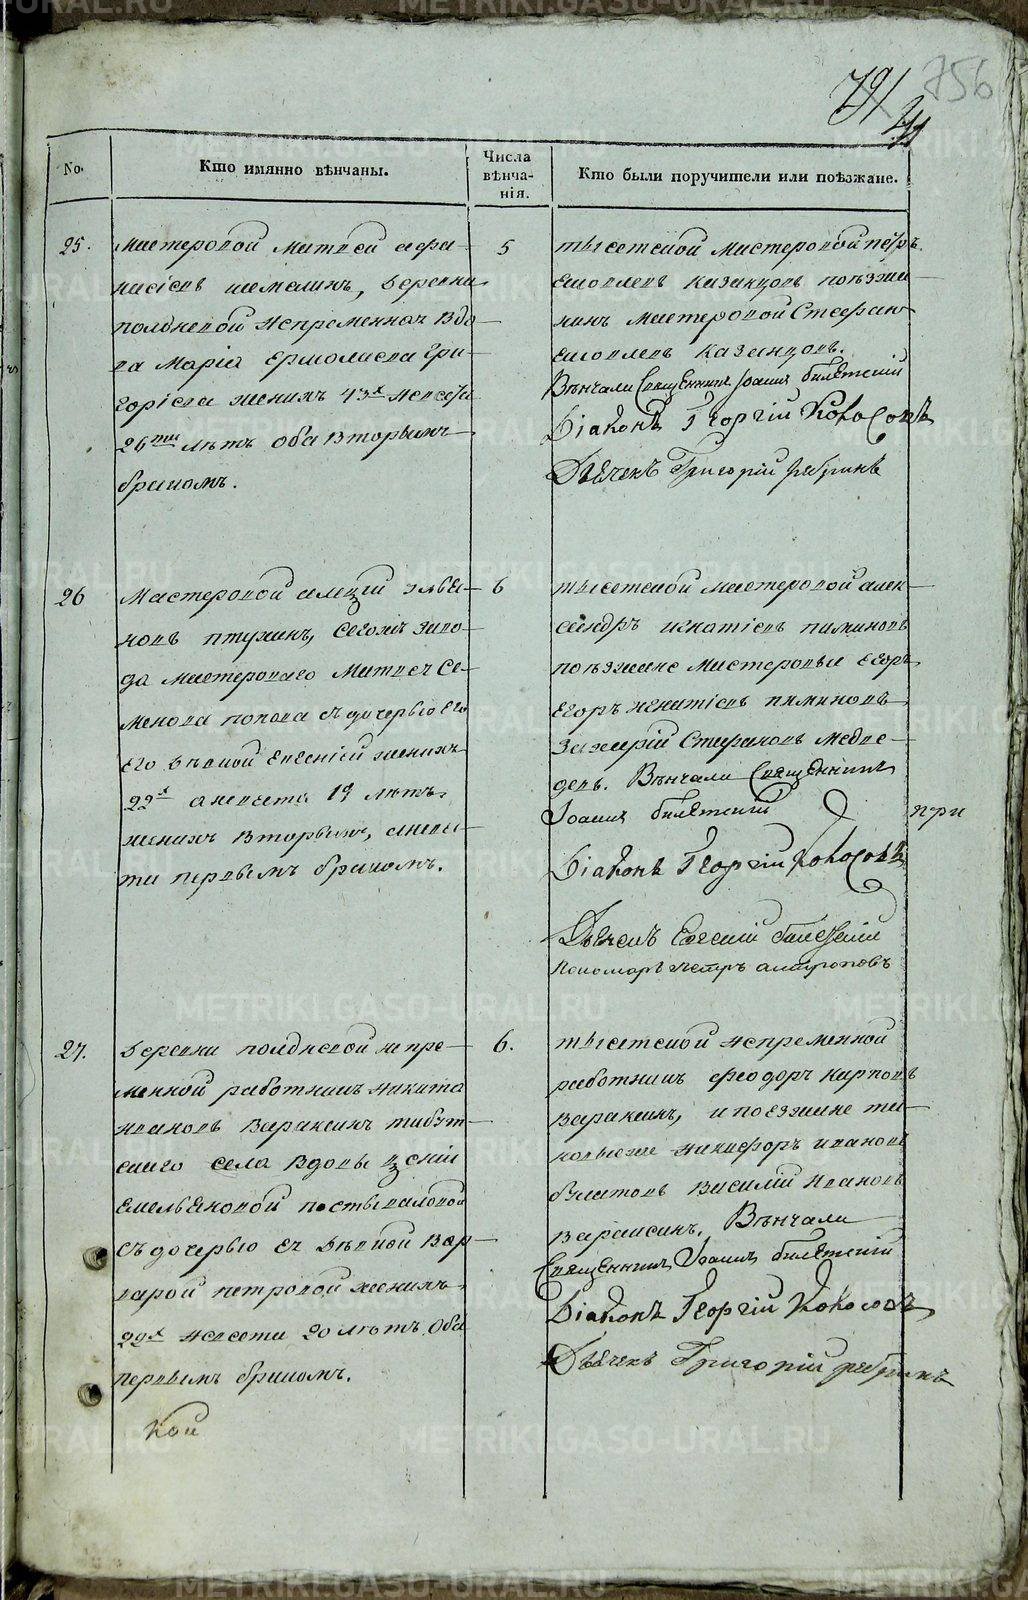 79/
41
756
No.
Кто имянно вѣнчаны.
Числа
вѣнча-
нія.
Кто были поручители или поѣзжане.
25.
мастеровой Матвей афа-
насіевъ шемелинъ, деревни
полдневой непременнаго вдо-
ва Марія Ермолаева Гри-
горіева женихъ 43х невеста
26ти лѣтъ оба вторымъ
бракомъ.
5
тысетской мастеровой пётръ
яковлевъ казанцовъ поѣзжа-
нинъ мастеровой Стефанъ
яковлевъ казанцовъ.
Вѣнчали Священникъ Іоаннъ билетский
Діаконъ Георгій Кокосовъ
Дьячекъ Григорій ребринъ
26
Мастеровой
птухинъ, сегожъ заво-
да мастероваго Матвея Се-
менова попова съ дочерью его
его дѣвкой Евгенией женихъ
22х а невеста 19 лѣтъ.
женихъ вторымъ, а невес-
та первымъ бракомъ.
6
тысетской мастеровой алек-
сандръ игнатіевъ пиминовъ
поѣзжане мастеровыи егоръ
Егоръ игнатіевъ пиминовъ
захарій Стефановъ медве-
девъ. Вѣнчали Священникъ
Іоаннъ билетский
при
Діаконъ Георгій Кокосовъ
Дьячекъ Евгений
Пономарь петръ антроповъ
27.
деревни полдневой непре-
менной работникъ никита
ивановъ Вараксинъ
села вдовы
емельяновой постываловой
съ дочерью ея дѣвкой вар-
варой петровой женихъ
22х невеста 20 лѣтъ. Оба
первымъ бракомъ.
6.
тысетской непременной
работникъ феодоръ карповъ
вараксинъ, и поезжане та-
ковые никифоръ ивановъ
булатовъ василий ивановъ
вараксинъ. Вѣнчали
Священникъ Іоаннъ билетский
Діаконъ Георгій Кокосовъ
Дьячекъ Григорій ребринъ
кой
METRIKI.GASO-URAL.RU